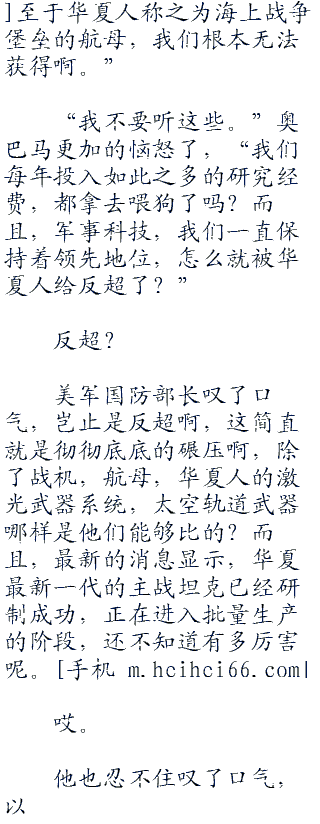 ]至于华夏人称之为海上战争
堡垒的航母，我们根本无法
获得啊。”
“我不要听这些。”奥
巴马更加的恼怒了，“我们
每年投入如此之多的研究经
费，都拿去喂狗了吗？而
且，军事科技，我们一直保
持着领先地位，怎么就被华
夏人给反超了？”
反超？
美军国防部长叹了口
气，岂止是反超啊，这简直
就是彻彻底底的碾压啊，除
了战机，航母，华夏人的激
光武器系统，太空轨道武器
哪样是他们能够比的？而
且，最新的消息显示，华夏
最新一代的主战坦克已经研
制成功，正在进入批量生产
的阶段，还不知道有多厉害
呢。[手机 m.hcihci66.com|
哎。
他也忍不住叹了口气，
以